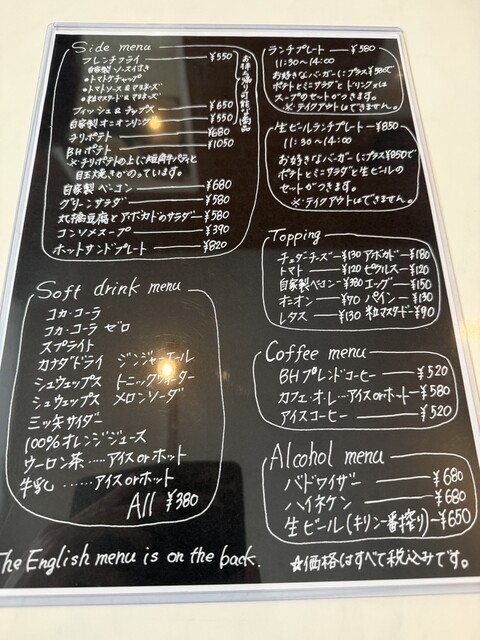 Side menu
フレンチフライ ¥550
自家製ソース付き
・トマトケチャップ
・トマトソース&マヨネーズ
・粒マスタード&マヨネーズ
フィッシュ&チップス ¥650
自家製オニオンリング ¥550
お持ち帰り可能な商品
チリポテト ¥680
BHポテト ¥1050
※チリポテトの上に短角牛パテと
目玉焼きがのっています。
自家製ベーコン ¥680
グリーンサラダ ¥580
豆腐とアボカドのサラダ ¥580
コンソメスープ ¥390
ホットサンドプレート ¥820
Soft drink menu
コカ・コーラ
コカ・コーラ ゼロ
スプライト
カナダドライ ジンジャーエール
シュウェップス トニックウォーター
シュウェップス メロンソーダ
三ッ矢サイダー
100%オレンジジュース
ウーロン茶 ..... アイスorホット
牛乳 ...... アイスorホット
All ¥380
The English menu is on the back.
ランチプレート ¥580
11:30~14:00
お好きなバーガーにプラス¥580で
ポテトとミニサラダとドリンクと
スープのセットがつきます。
※テイクアウトはできません。
生ビールランチプレート ¥850
11:30~14:00
お好きなバーガーにプラス¥850で
ポテトとミニサラダと生ビールの
セットがつきます。
※テイクアウトはできません。
Topping
チェダーチーズ ¥130 アボカド ¥180
トマト ¥120 ピクルス ¥120
自家製ベーコン ¥380 エッグ ¥150
オニオン ¥70 パイン ¥130
レタス ¥130 粒マスタード ¥90
Coffee menu
BHブレンドコーヒー ¥520
カフェ・オ・レ...アイスorホット ¥580
アイスコーヒー ¥520
Alcohol menu
バドワイザー ¥680
ハイネケン ¥680
生ビール(キリン一番搾り) ¥650
☆価格はすべて税込みです。